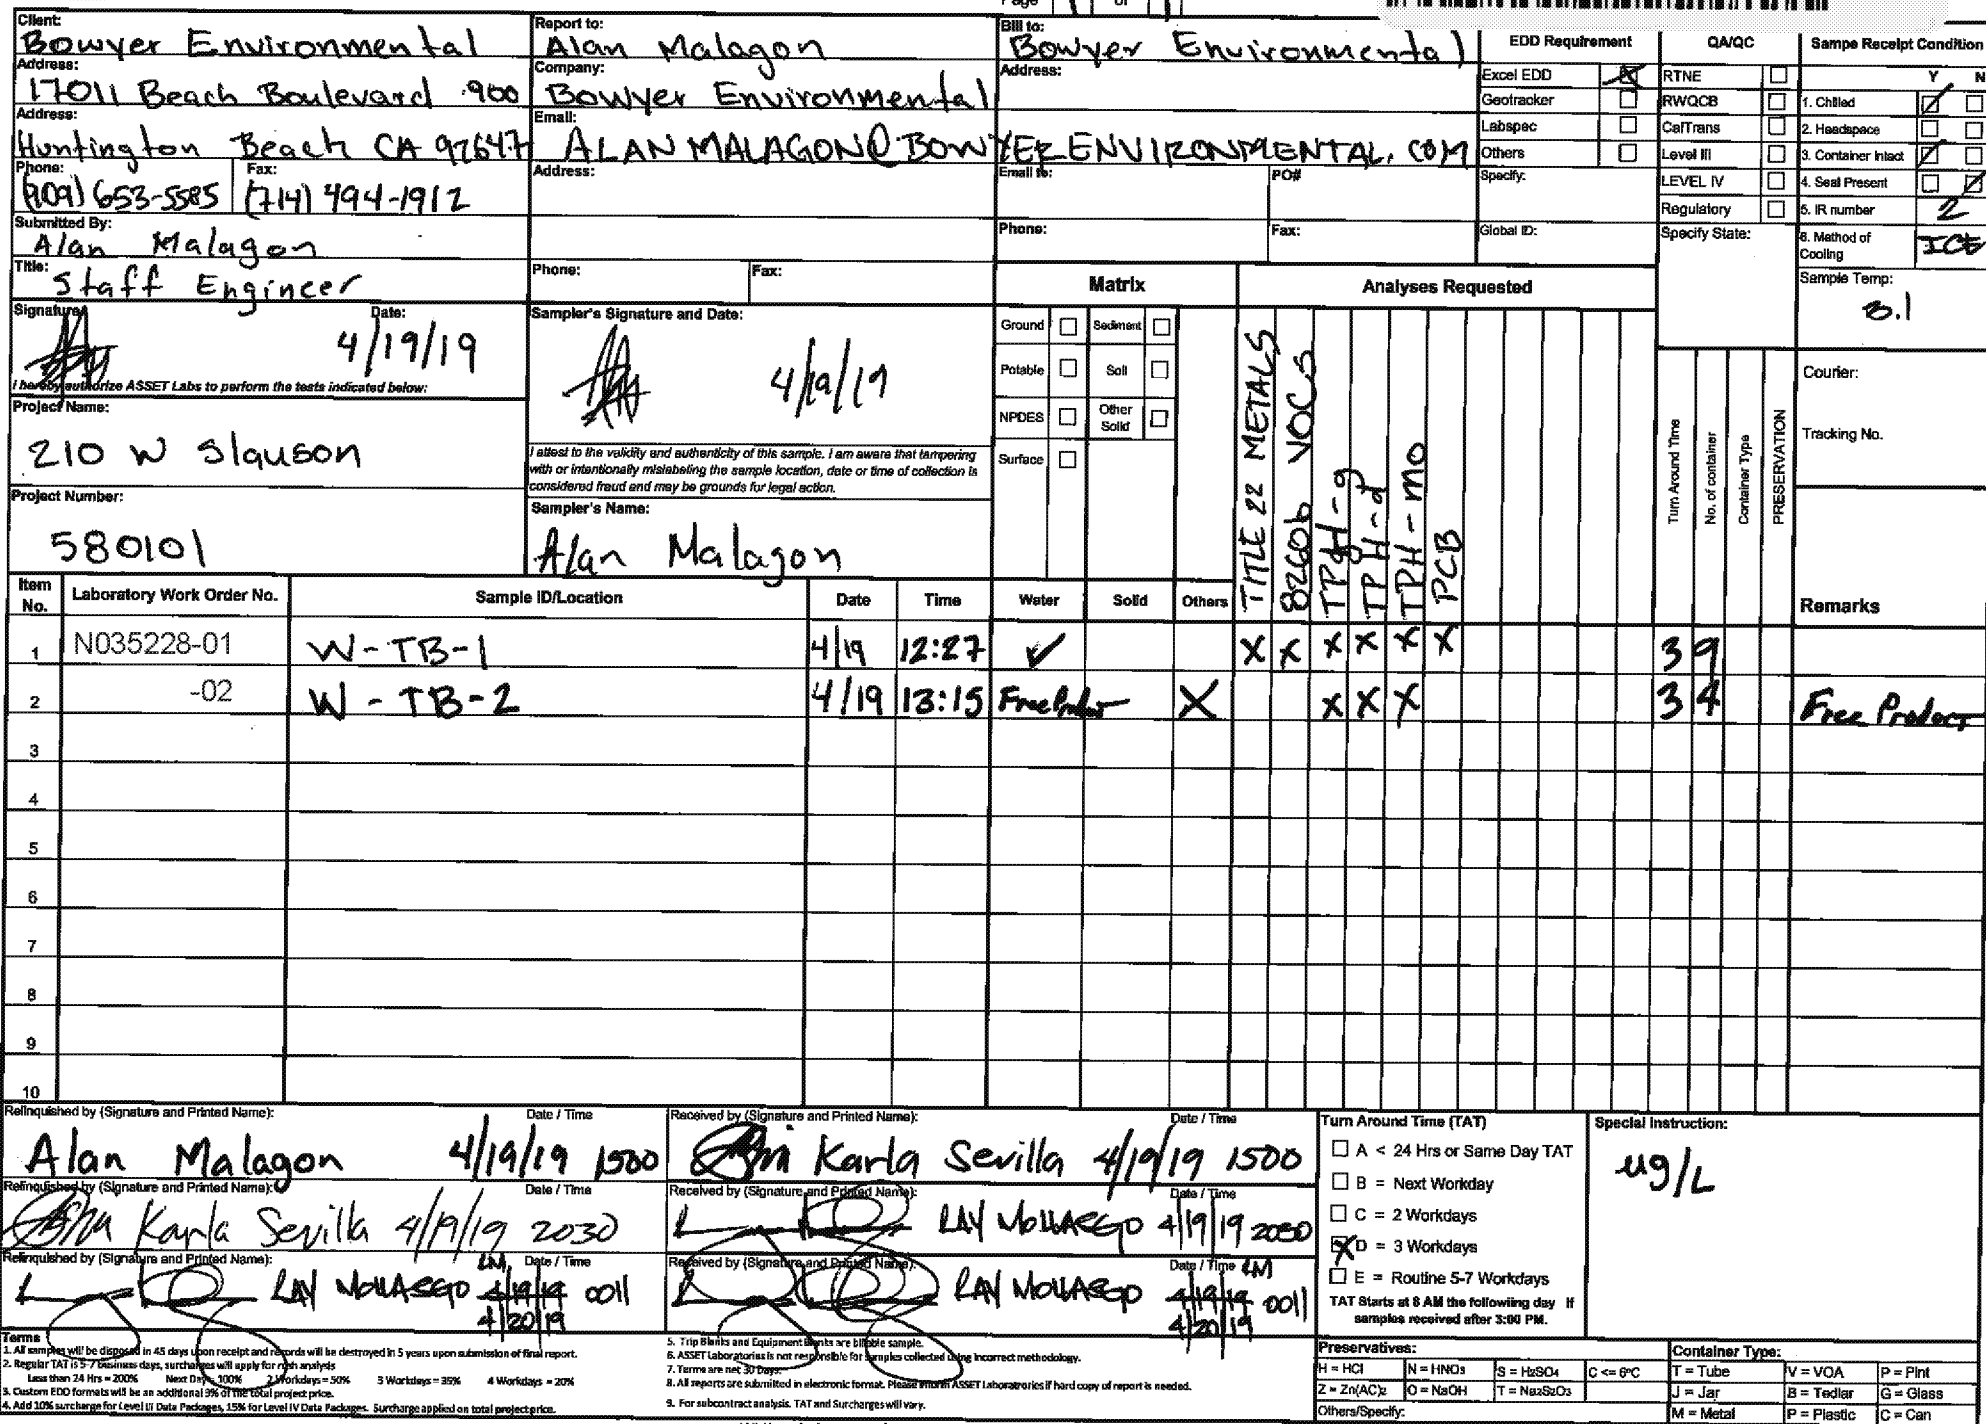 Page 1 of 1
Client:
Bowyer Environmental
Address:
17011 Beach Boulevard 900
Address:
Huntington Beach CA 92647
Phone: Fax:
(909) 653-5585 (714) 494-1912
Submitted By:
Alan Malagon
Title:
Staff Engineer
Signature: Date:
4/19/19
I hereby authorize ASSET Labs to perform the tests indicated below:
Project Name:
210 W Slauson
Project Number:
580101
Report to:
Alan Malagon
Company:
Bowyer Environmental
Email:
ALANMALAGON@BOWYERENVIRONMENTAL.COM
Address:
Phone: Fax:
Sampler's Signature and Date:
4/19/19
I attest to the validity and authenticity of this sample. I am aware that tampering
with or intentionally mislabeling the sample location, date or time of collection is
considered fraud and may be grounds for legal action.
Sampler's Name:
Alan Malagon
Bill to:
Bowyer Environmental
Address:
Email to: PO#
Phone: Fax:
EDD Requirement
Excel EDD
Geotracker
Labspec
Others
Specify:
Global ID:
QA/QC
RTNE
RWQCB
CalTrans
Level III
LEVEL IV
Regulatory
Specify State:
Sampe Receipt Condition
Y N
1. Chilled
2. Headspace
3. Container Intact
4. Seal Present
5. IR number 2
6. Method of Cooling ICE
Sample Temp:
3.1
Courier:
Tracking No.
Matrix
Ground Sediment
Potable Soil
NPDES Other Solid
Surface
Analyses Requested
TITLE 22 METALS
8260b VOCS
TPH-g
TPH-d
TPH-mo
PCB
Turn Around Time
No. of container
Container Type
PRESERVATION
Item No. Laboratory Work Order No. Sample ID/Location Date Time Water Solid Others Remarks
1 N035228-01 W-TB-1 4/19 12:27 ✓ X X X X X X 3 9
2 -02 W-TB-2 4/19 13:15 Free Product X X X X 3 4 Free Product
3
4
5
6
7
8
9
10
Relinquished by (Signature and Printed Name): Date / Time
Alan Malagon 4/19/19 1500
Received by (Signature and Printed Name): Date / Time
Karla Sevilla 4/19/19 1500
Relinquished by (Signature and Printed Name): Date / Time
Karla Sevilla 4/19/19 2030
Received by (Signature and Printed Name): Date / Time
RAY 4/19/19 2030
Relinquished by (Signature and Printed Name): Date / Time
RAY LM 4/19/19 0011
4/20/19
Received by (Signature and Printed Name): Date / Time
RAY LM 4/19/19 0011
4/20/19
Turn Around Time (TAT)
A < 24 Hrs or Same Day TAT
B = Next Workday
C = 2 Workdays
D = 3 Workdays
E = Routine 5-7 Workdays
TAT Starts at 8 AM the following day if
samples received after 3:00 PM.
Special Instruction:
ug/L
Terms
1. All samples will be disposed in 45 days upon receipt and records will be destroyed in 5 years upon submission of final report.
2. Regular TAT is 5-7 business days, surcharges will apply for rush analysis
Less than 24 Hrs = 200% Next Day = 100% 2 Workdays = 50% 3 Workdays = 35% 4 Workdays = 20%
3. Custom EDD formats will be an additional 3% of the total project price.
4. Add 10% surcharge for Level III Data Packages, 15% for Level IV Data Packages. Surcharge applied on total project price.
5. Trip Blanks and Equipment Blanks are billable sample.
6. ASSET Laboratories is not responsible for samples collected using incorrect methodology.
7. Terms are net 30 Days.
8. All reports are submitted in electronic format. Please inform ASSET Laboratories if hard copy of report is needed.
9. For subcontract analysis, TAT and Surcharges will vary.
Preservatives:
H = HCl N = HNO3 S = H2SO4 C <= 6°C
Z = Zn(AC)2 O = NaOH T = Na2S2O3
Others/Specify:
Container Type:
T = Tube V = VOA P = Pint
J = Jar B = Tedlar G = Glass
M = Metal P = Plastic C = Can